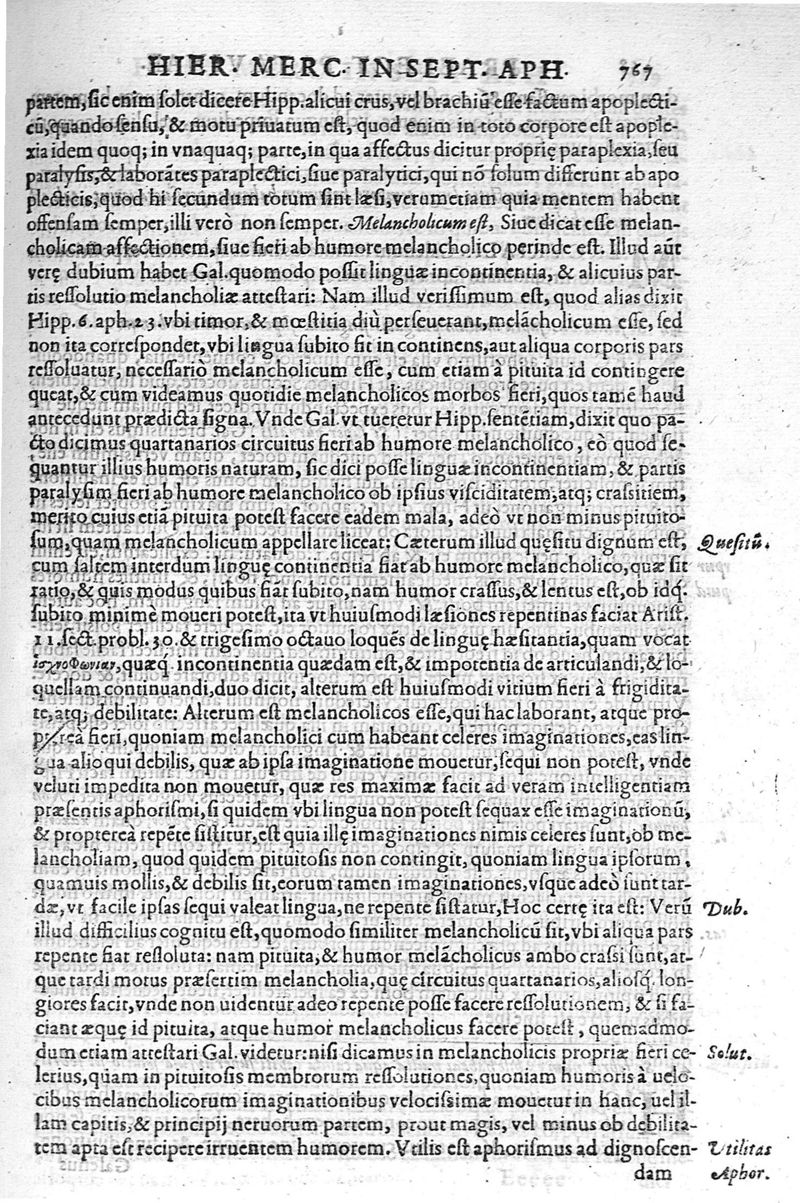 HIER. MERC. IN SEPT. APH. 767
partem, sic enim solet dicere Hipp. alicui crus, vel brachiũ esse factum apoplecti-
cũ, quando sensu, & motu priuatum est, quod enim in toto corpore est apople-
xia idem quoq; in vnaquaq; parte, in qua affectus dicitur proprię paraplexia, seu
paralysis, & laborãtes paraplectici, siue paralytici, qui nõ solum differunt ab apo
plecticis, quod hi secundum totum sint læsi, verumetiam quia mentem habent
offensam semper, illi verò non semper. Melancholicum est, Siue dicat esse melan-
cholicam affectionem, siue fieri ab humore melancholico perinde est. Illud aũt
verę dubium habet Gal. quomodo possit linguæ incontinentia, & alicuius par-
tis ressolutio melancholiæ attestari: Nam illud verissimum est, quod alias dixit
Hipp. 6. aph. 23. vbi timor, & mœstitia diù perseuerant, melãcholicum esse, sed
non ita correspondet, vbi lingua subito fit in continens, aut aliqua corporis pars
ressoluatur, necessariò melancholicum esse, cum etiam à pituita id contingere
queat, & cum videamus quotidie melancholicos morbos fieri, quos tamẽ haud
antecedunt prædicta signa. Vnde Gal. vt tueretur Hipp. sentẽtiam, dixit quo pa-
cto dicimus quartanarios circuitus fieri ab humore melancholico, eò quod se-
quantur illius humoris naturam, sic dici posse linguæ incontinentiam, & partis
paralysim fieri ab humore melancholico ob ipsius visciditatem, atq; crassitiem,
merito cuius etiã pituita potest facere eadem mala, adeò vt non minus pituito-
sum, quam melancholicum appellare liceat: Cæterum illud quęsitu dignum est, Quesitũ.
cum saltem interdum linguę continentia fiat ab humore melancholico, quæ sit
ratio, & quis modus quibus fiat subito, nam humor crassus, & lentus est, ob idq́.
subito minimè moueri potest, ita vt huiusmodi læsiones repentinas faciat Arist.
11. sect. probl. 30. & trigesimo octauo loquẽs de linguę hæsitantia, quam vocat
ἰσχνοφωνίαν, quæq́. incontinentia quædam est, & impotentia de articulandi, & lo-
quellam continuandi, duo dicit, alterum est huiusmodi vitium fieri à frigidita-
te, atq; debilitate: Alterum est melancholicos esse, qui hac laborant, atque pro-
ptereà fieri, quoniam melancholici cum habeant celeres imaginationes, eas lin-
gua alioqui debilis, quæ ab ipsa imaginatione mouetur, sequi non potest, vnde
veluti impedita non mouetur, quæ res maximæ facit ad veram intelligentiam
præsentis aphorismi, si quidem vbi lingua non potest sequax esse imaginationũ,
& propterea repẽte sistitur, est quia illę imaginationes nimis celeres sunt, ob me-
lancholiam, quod quidem pituitosis non contingit, quoniam lingua ipsorum,
quamuis mollis, & debilis sit, eorum tamen imaginationes, vsque adeò sunt tar-
dæ, vt facile ipsas sequi valeat lingua, ne repente sistatur, Hoc certę ita est: Verũ Dub.
illud difficilius cognitu est, quomodo similiter melancholicũ sit, vbi aliqua pars
repente fiat ressoluta: nam pituita, & humor melãcholicus ambo crassi sunt, at-
que tardi motus præsertim melancholia, quę circuitus quartanarios, aliosq́. lon-
giores facit, vnde non uidentur adeo repente posse facere ressolutionem, & si fa-
ciant æquę id pituita, atque humor melancholicus facere potest, quemadmo-
dum etiam attestari Gal. videtur: nisi dicamus in melancholicis propriæ fieri ce- Solut.
lerius, quam in pituitosis membrorum ressolutiones, quoniam humoris à uelo-
cibus melancholicorum imaginationibus velocissimæ mouetur in hanc, uel il-
lam capitis, & principij neruorum partem, prout magis, vel minus ob debilita-
tem apta est recipere irruentem humorem. Vtilis est aphorismus ad dignoscen- Vtilitas
dam Aphor.